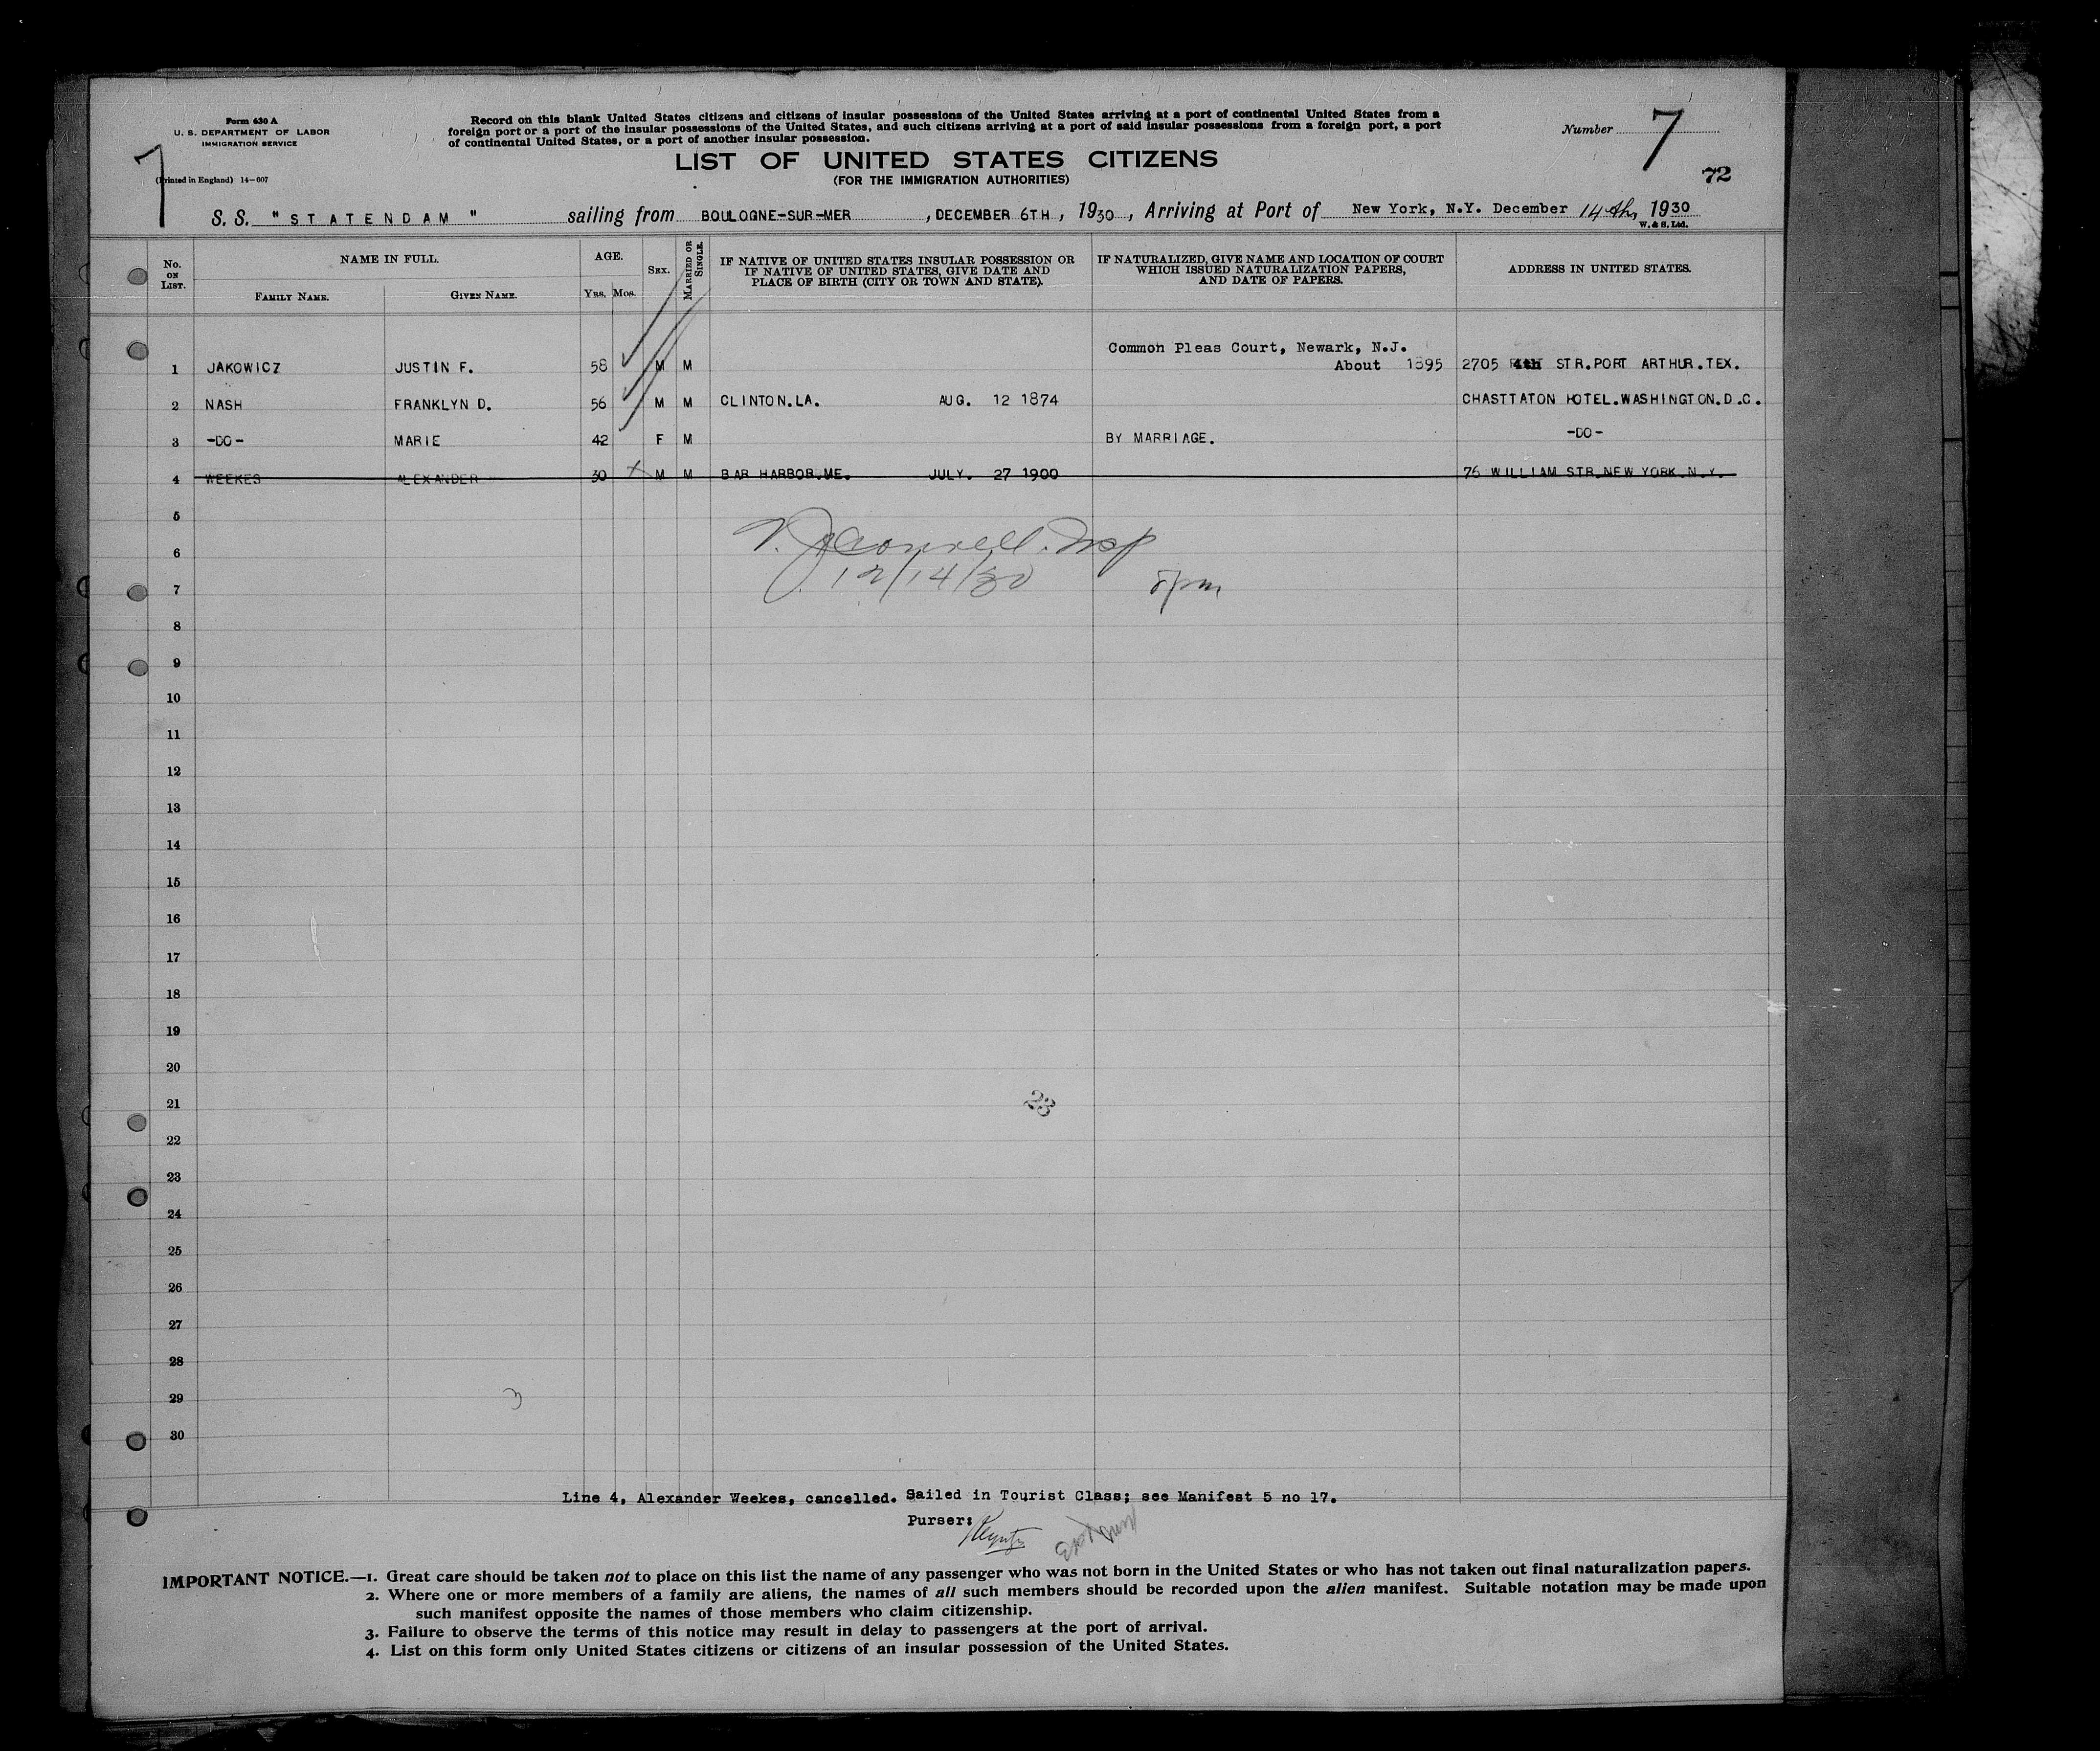 Form 630 A
U. S. DEPARTMENT OF LABOR
IMMIGRATION SERVICE
(Printed in England) 14—607
7
Record on this blank United States citizens and citizens of insular possessions of the United States arriving at a port of continental United States from a
foreign port or a port of the insular possessions of the United States, and such citizens arriving at a port of said insular possessions from a foreign port, a port
of continental United States, or a port of another insular possession.
LIST OF UNITED STATES CITIZENS
(FOR THE IMMIGRATION AUTHORITIES)
Number 7
72
S. S. "STATENDAM" sailing from BOULOGNE-SUR-MER, DECEMBER 6TH, 1930, Arriving at Port of New York, N.Y. December 14th, 1930
W. & S. Ltd.
No. ON LIST. NAME IN FULL. FAMILY NAME. GIVEN NAME. AGE. YRS. MOS. SEX. MARRIED OR SINGLE. IF NATIVE OF UNITED STATES INSULAR POSSESSION OR IF NATIVE OF UNITED STATES, GIVE DATE AND PLACE OF BIRTH (CITY OR TOWN AND STATE). IF NATURALIZED, GIVE NAME AND LOCATION OF COURT WHICH ISSUED NATURALIZATION PAPERS, AND DATE OF PAPERS. ADDRESS IN UNITED STATES.
Common Pleas Court, Newark, N.J.
1 JAKOWICZ JUSTIN F. 58 M M About 1895 2705 4th STR.PORT ARTHUR.TEX.
2 NASH FRANKLYN D. 56 M M CLINTON.LA. AUG. 12 1874 CHASTTATON HOTEL.WASHINGTON.D.C.
3 -DO- MARIE 42 F M BY MARRIAGE. -DO-
4 WEEKES ALEXANDER 30 M M BAR HARBOR.ME. JULY. 27 1900 76 WILLIAM STR.NEW YORK.N.Y.
5
6
12/14/30
7
8
9
10
11
12
13
14
15
16
17
18
19
20
21
23
22
23
24
25
26
27
28
29
3
30
Line 4, Alexander Weekes, cancelled. Sailed in Tourist Class; see Manifest 5 no 17.
Purser:
IMPORTANT NOTICE.—1. Great care should be taken not to place on this list the name of any passenger who was not born in the United States or who has not taken out final naturalization papers.
2. Where one or more members of a family are aliens, the names of all such members should be recorded upon the alien manifest. Suitable notation may be made upon
such manifest opposite the names of those members who claim citizenship.
3. Failure to observe the terms of this notice may result in delay to passengers at the port of arrival.
4. List on this form only United States citizens or citizens of an insular possession of the United States.